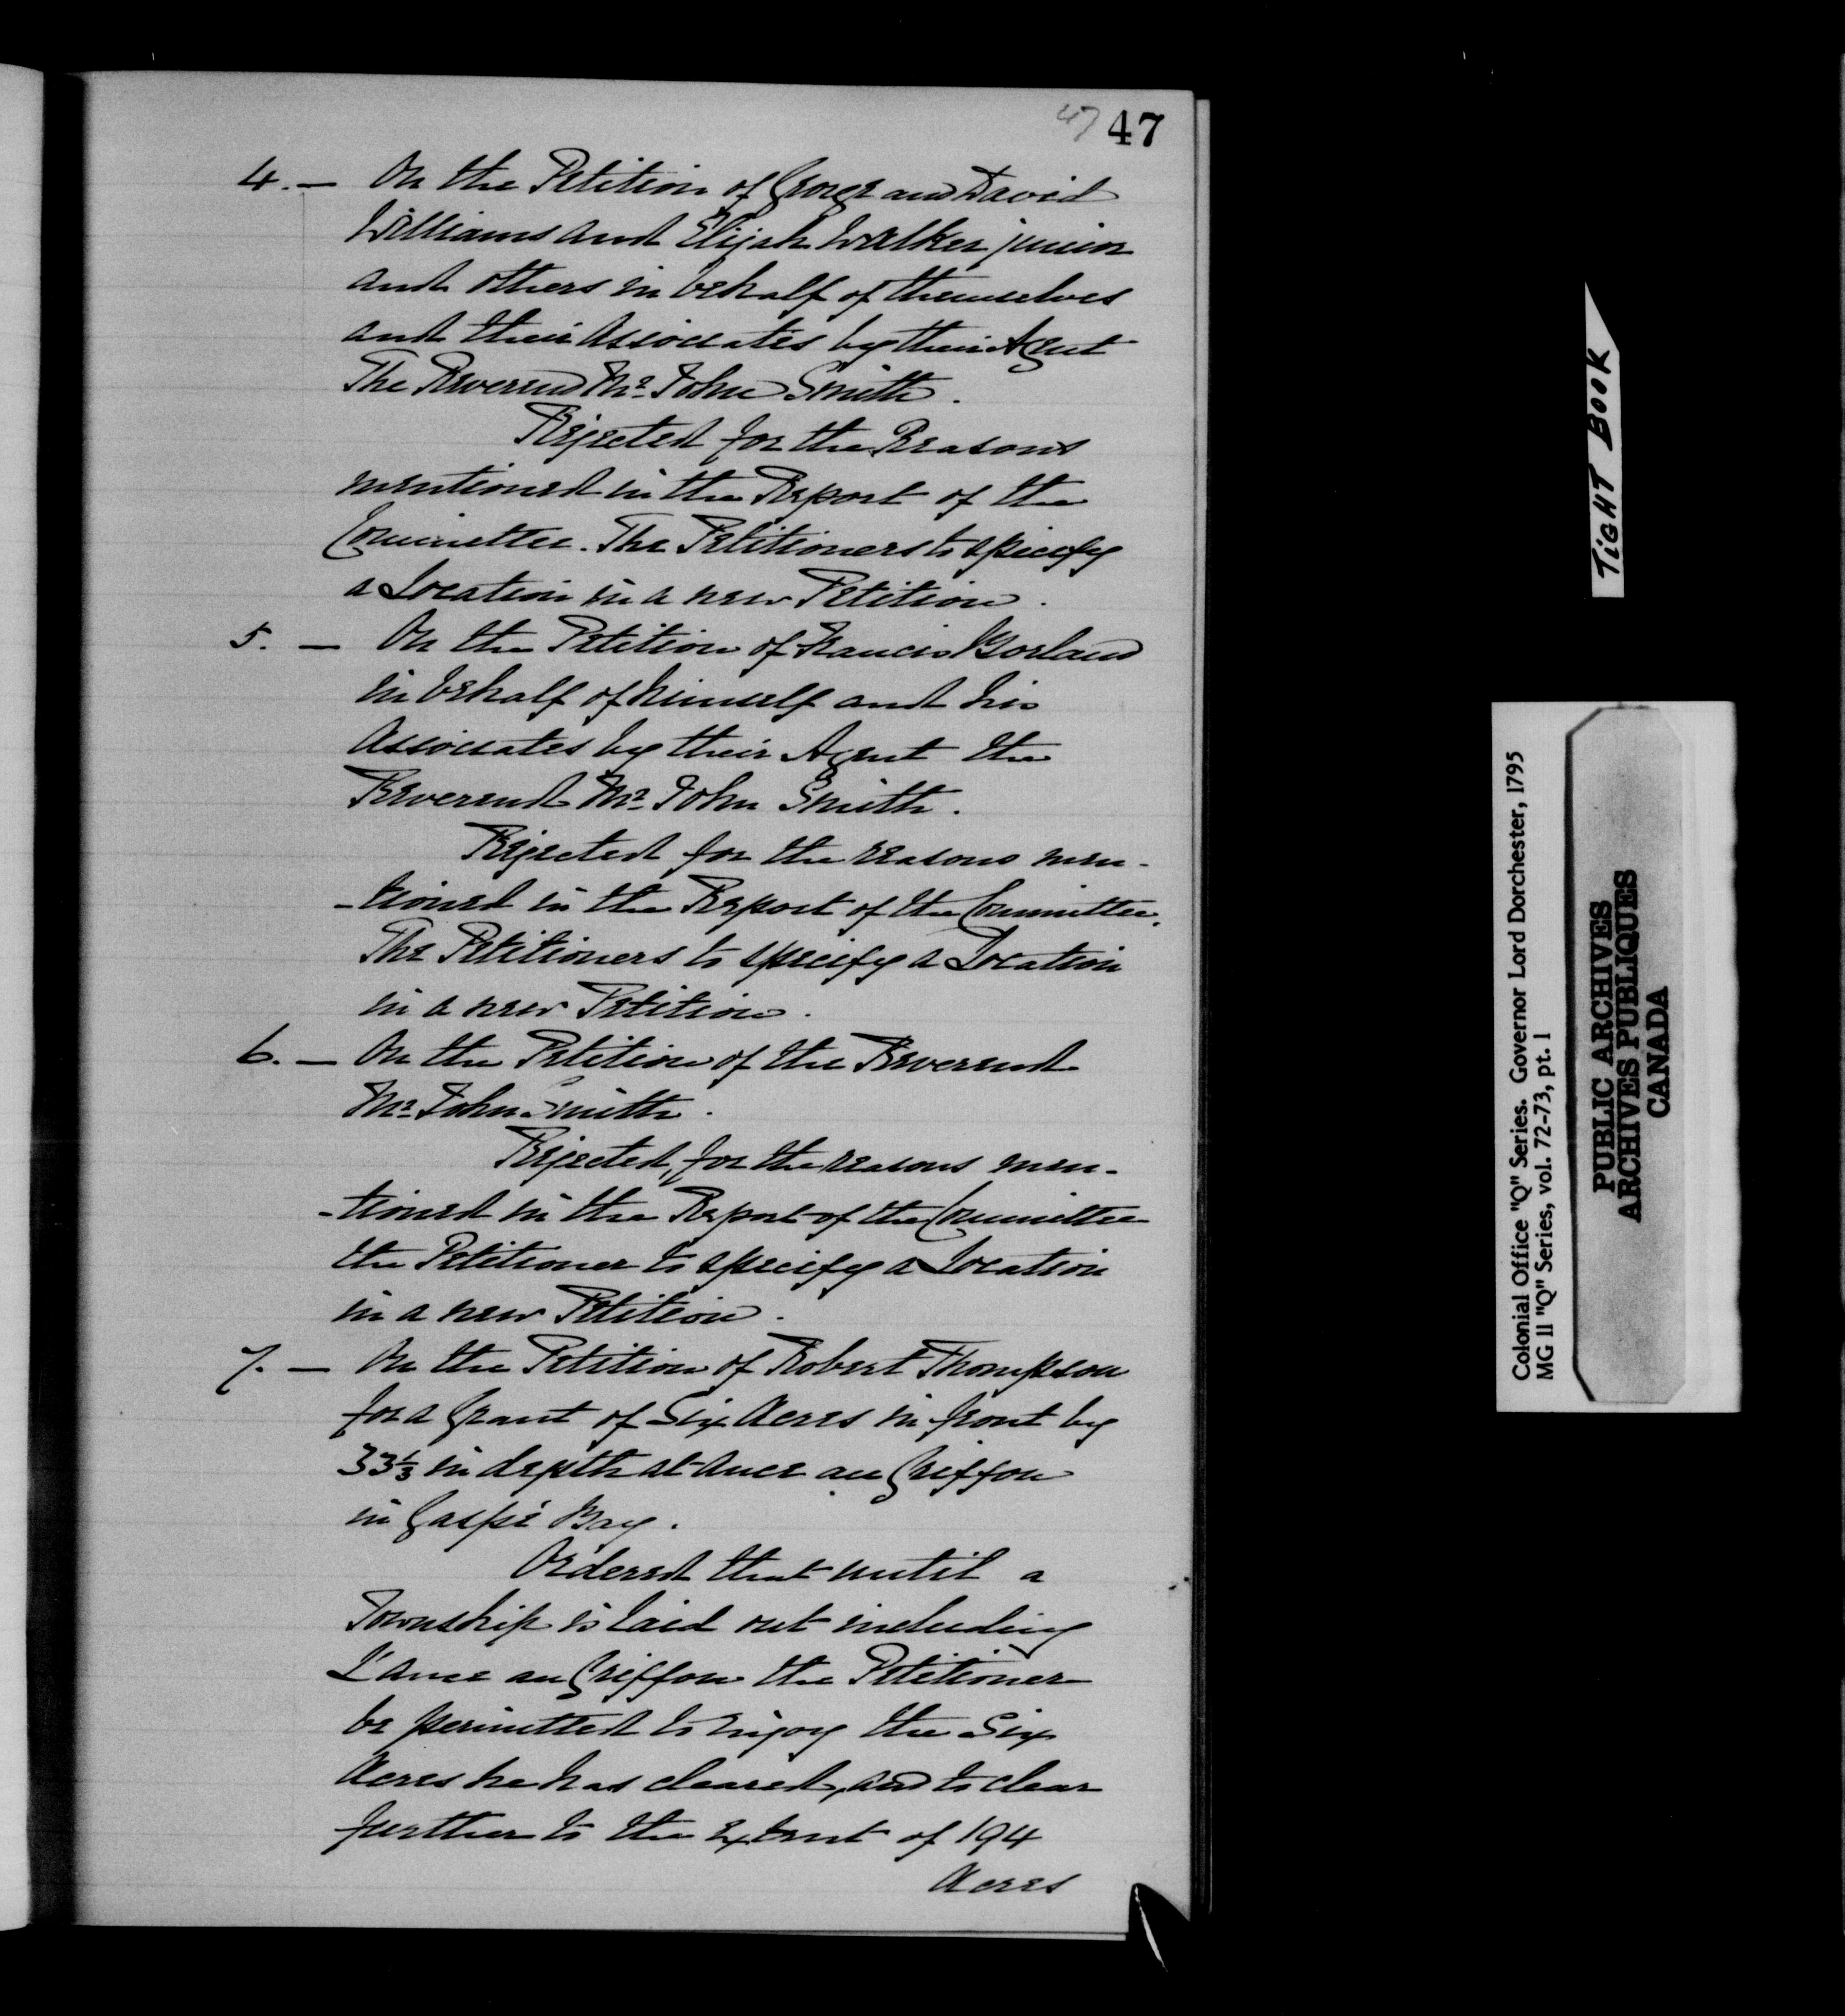 47 47
4. — On the Petition of George and David
Williams and Elijah Walker junior
and others in behalf of themselves
and their Associates by their Agent
The Reverend Mr. John Smith.
Rejected for the Reasons
mentioned in the Report of the
Committee. The Petitioners to specify
a Location in a new Petition.
5. — On the Petition of Francis Borland
in behalf of himself and his
Associates by their Agent the
Reverend Mr. John Smith.
Rejected for the reasons men-
-tioned in the Report of the Committee.
The Petitioners to specify a Location
in a new Petition.
6. — On the Petition of the Reverend
Mr. John Smith.
Rejected, for the reasons men-
-tioned in the Report of the Committee
the Petitioner to specify a Location
in a new Petition.
7. — On the Petition of Robert Thompson
for a Grant of Six Acres in front by
33⅓ in depth at Ance au Griffon
in Gaspé Bay.
Ordered that until a
Township is laid out including
L'Ance au Griffon the Petitioner
be permitted to enjoy the Six
Acres he has cleared, and to clear
further to the extent of 194
Acres
TIGHT BOOK
Colonial Office "Q" Series. Governor Lord Dorchester, 1795
MG 11 "Q" Series, vol. 72-73, pt. 1
PUBLIC ARCHIVES
ARCHIVES PUBLIQUES
CANADA